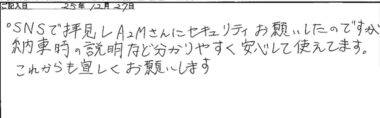 ご記入日 25年 12月 27日
○SNSで拝見しA2Mさんにセキュリティお願いしたのですが
納車時の説明など分かりやすく安心して使えてます。
これからも宜しくお願いします